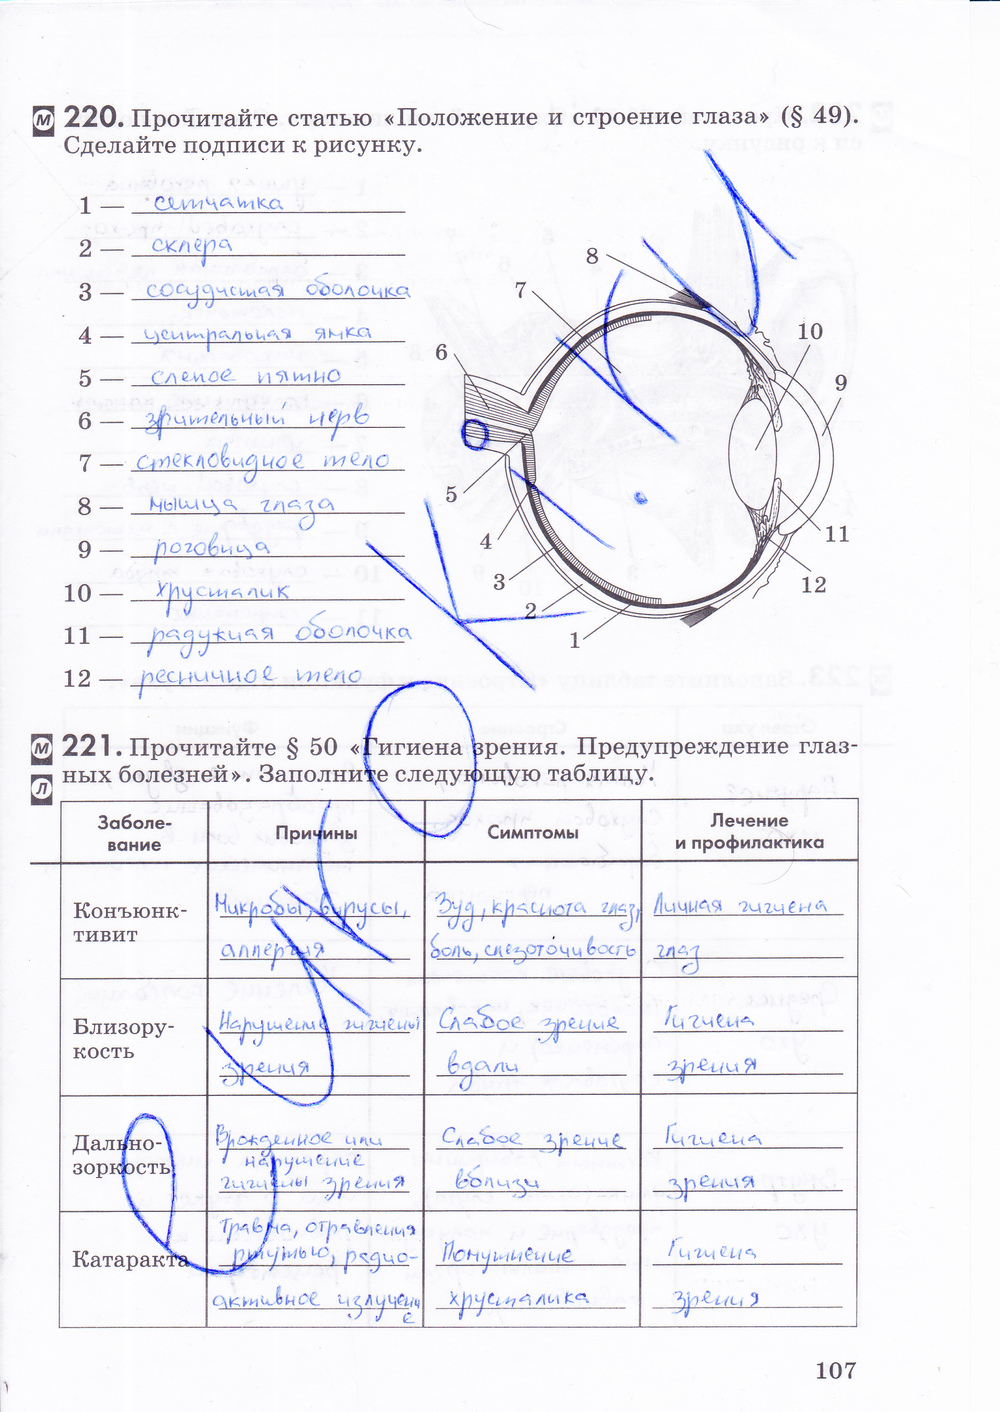 М 220. Прочитайте статью «Положение и строение глаза» (§ 49).
Сделайте подписи к рисунку.
1 — сетчатка
2 — склера
3 — сосудистая оболочка
4 — центральная ямка
5 — слепое пятно
6 — зрительный нерв
7 — стекловидное тело
8 — мышца глаза
9 — роговица
10 — хрусталик
11 — радужная оболочка
12 — ресничное тело
8
7
10
6
9
5
11
4
3
12
2
1
М 221. Прочитайте § 50 «Гигиена зрения. Предупреждение глаз-
Л ных болезней». Заполните следующую таблицу.
Заболе-
вание
Причины
Симптомы
Лечение
и профилактика
Конъюнк-
тивит
Микробы, вирусы,
аллергия
Зуд, краснота глаз,
боль, слезоточивость
Личная гигиена
глаз
Близору-
кость
Нарушение гигиены
зрения
Слабое зрение
вдали
Гигиена
зрения
Дально-
зоркость
Врожденное или
нарушение
гигиены зрения
Слабое зрение
вблизи
Гигиена
зрения
Катаракта
травма, отравления
ртутью, радио-
активное излучение
Помутнение
хрусталика
Гигиена
зрения
107